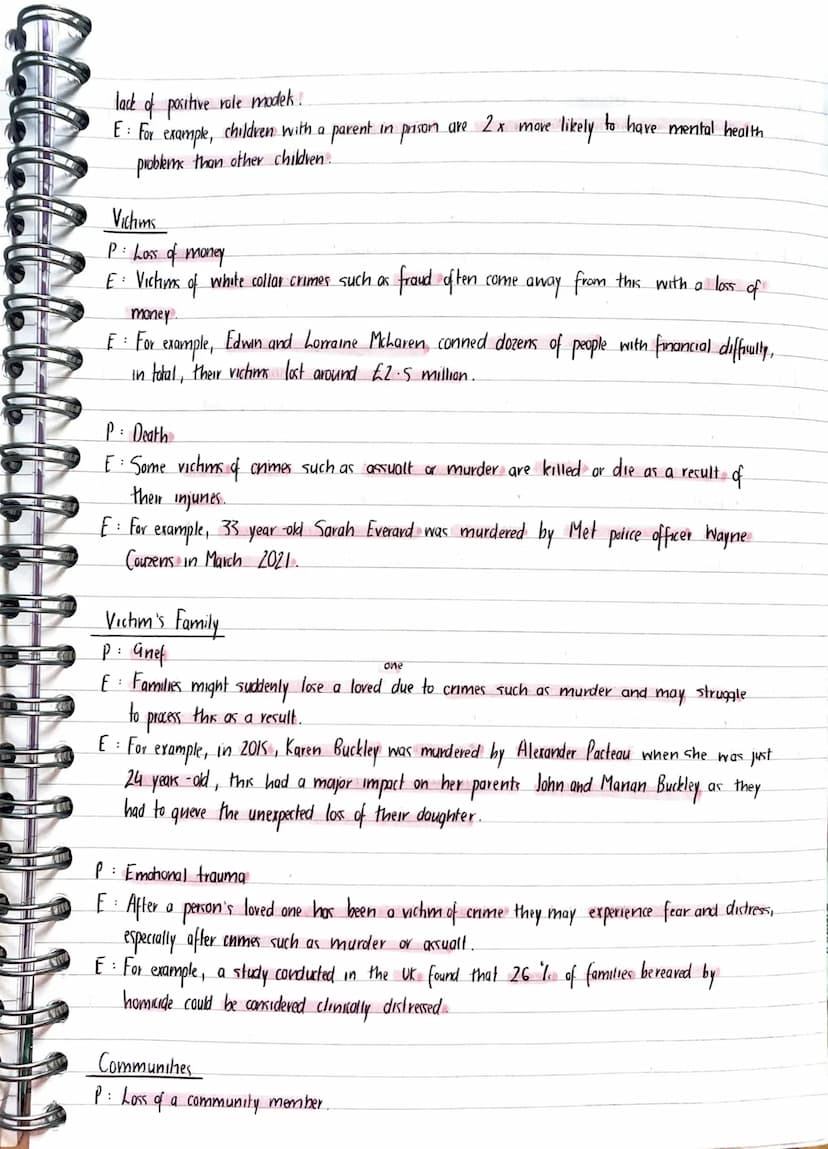 lack of positive role models.
E: For example, children with a parent in prison are 2x more likely to have mental health
problems than other children.
Victims
P: Loss of money
E: Victims of white collar crimes such as fraud often come away from this with a loss of
money.
E: For example, Edwin and Lorraine McLaren, conned dozens of people with financial difficulty,
in total, their victims lost around £2.5 million.
P: Death
E: Some victims of crimes such as assualt or murder are killed or die as a result of
their injuries.
E: For example, 33 year-old Sarah Everard was murdered by Met police officer Wayne
Couzens in March 2021.
Victim's Family
P: Grief
one
E: Families might suddenly lose a loved due to crimes such as murder and may struggle
to process this as a result.
E: For example, in 2015, Karen Buckley was murdered by Alexander Pacteau when she was just
24 years-old, this had a major impact on her parents John and Marian Buckley as they
had to grieve the unexpected loss of their daughter.
P: Emotional trauma
E: After a person's loved one has been a victim of crime they may experience fear and distress,
especially after crimes such as murder or assualt.
E: For example, a study conducted in the UK found that 26% of families bereaved by
homicide could be considered clinically distressed.
Communities
P: Loss of a community member.